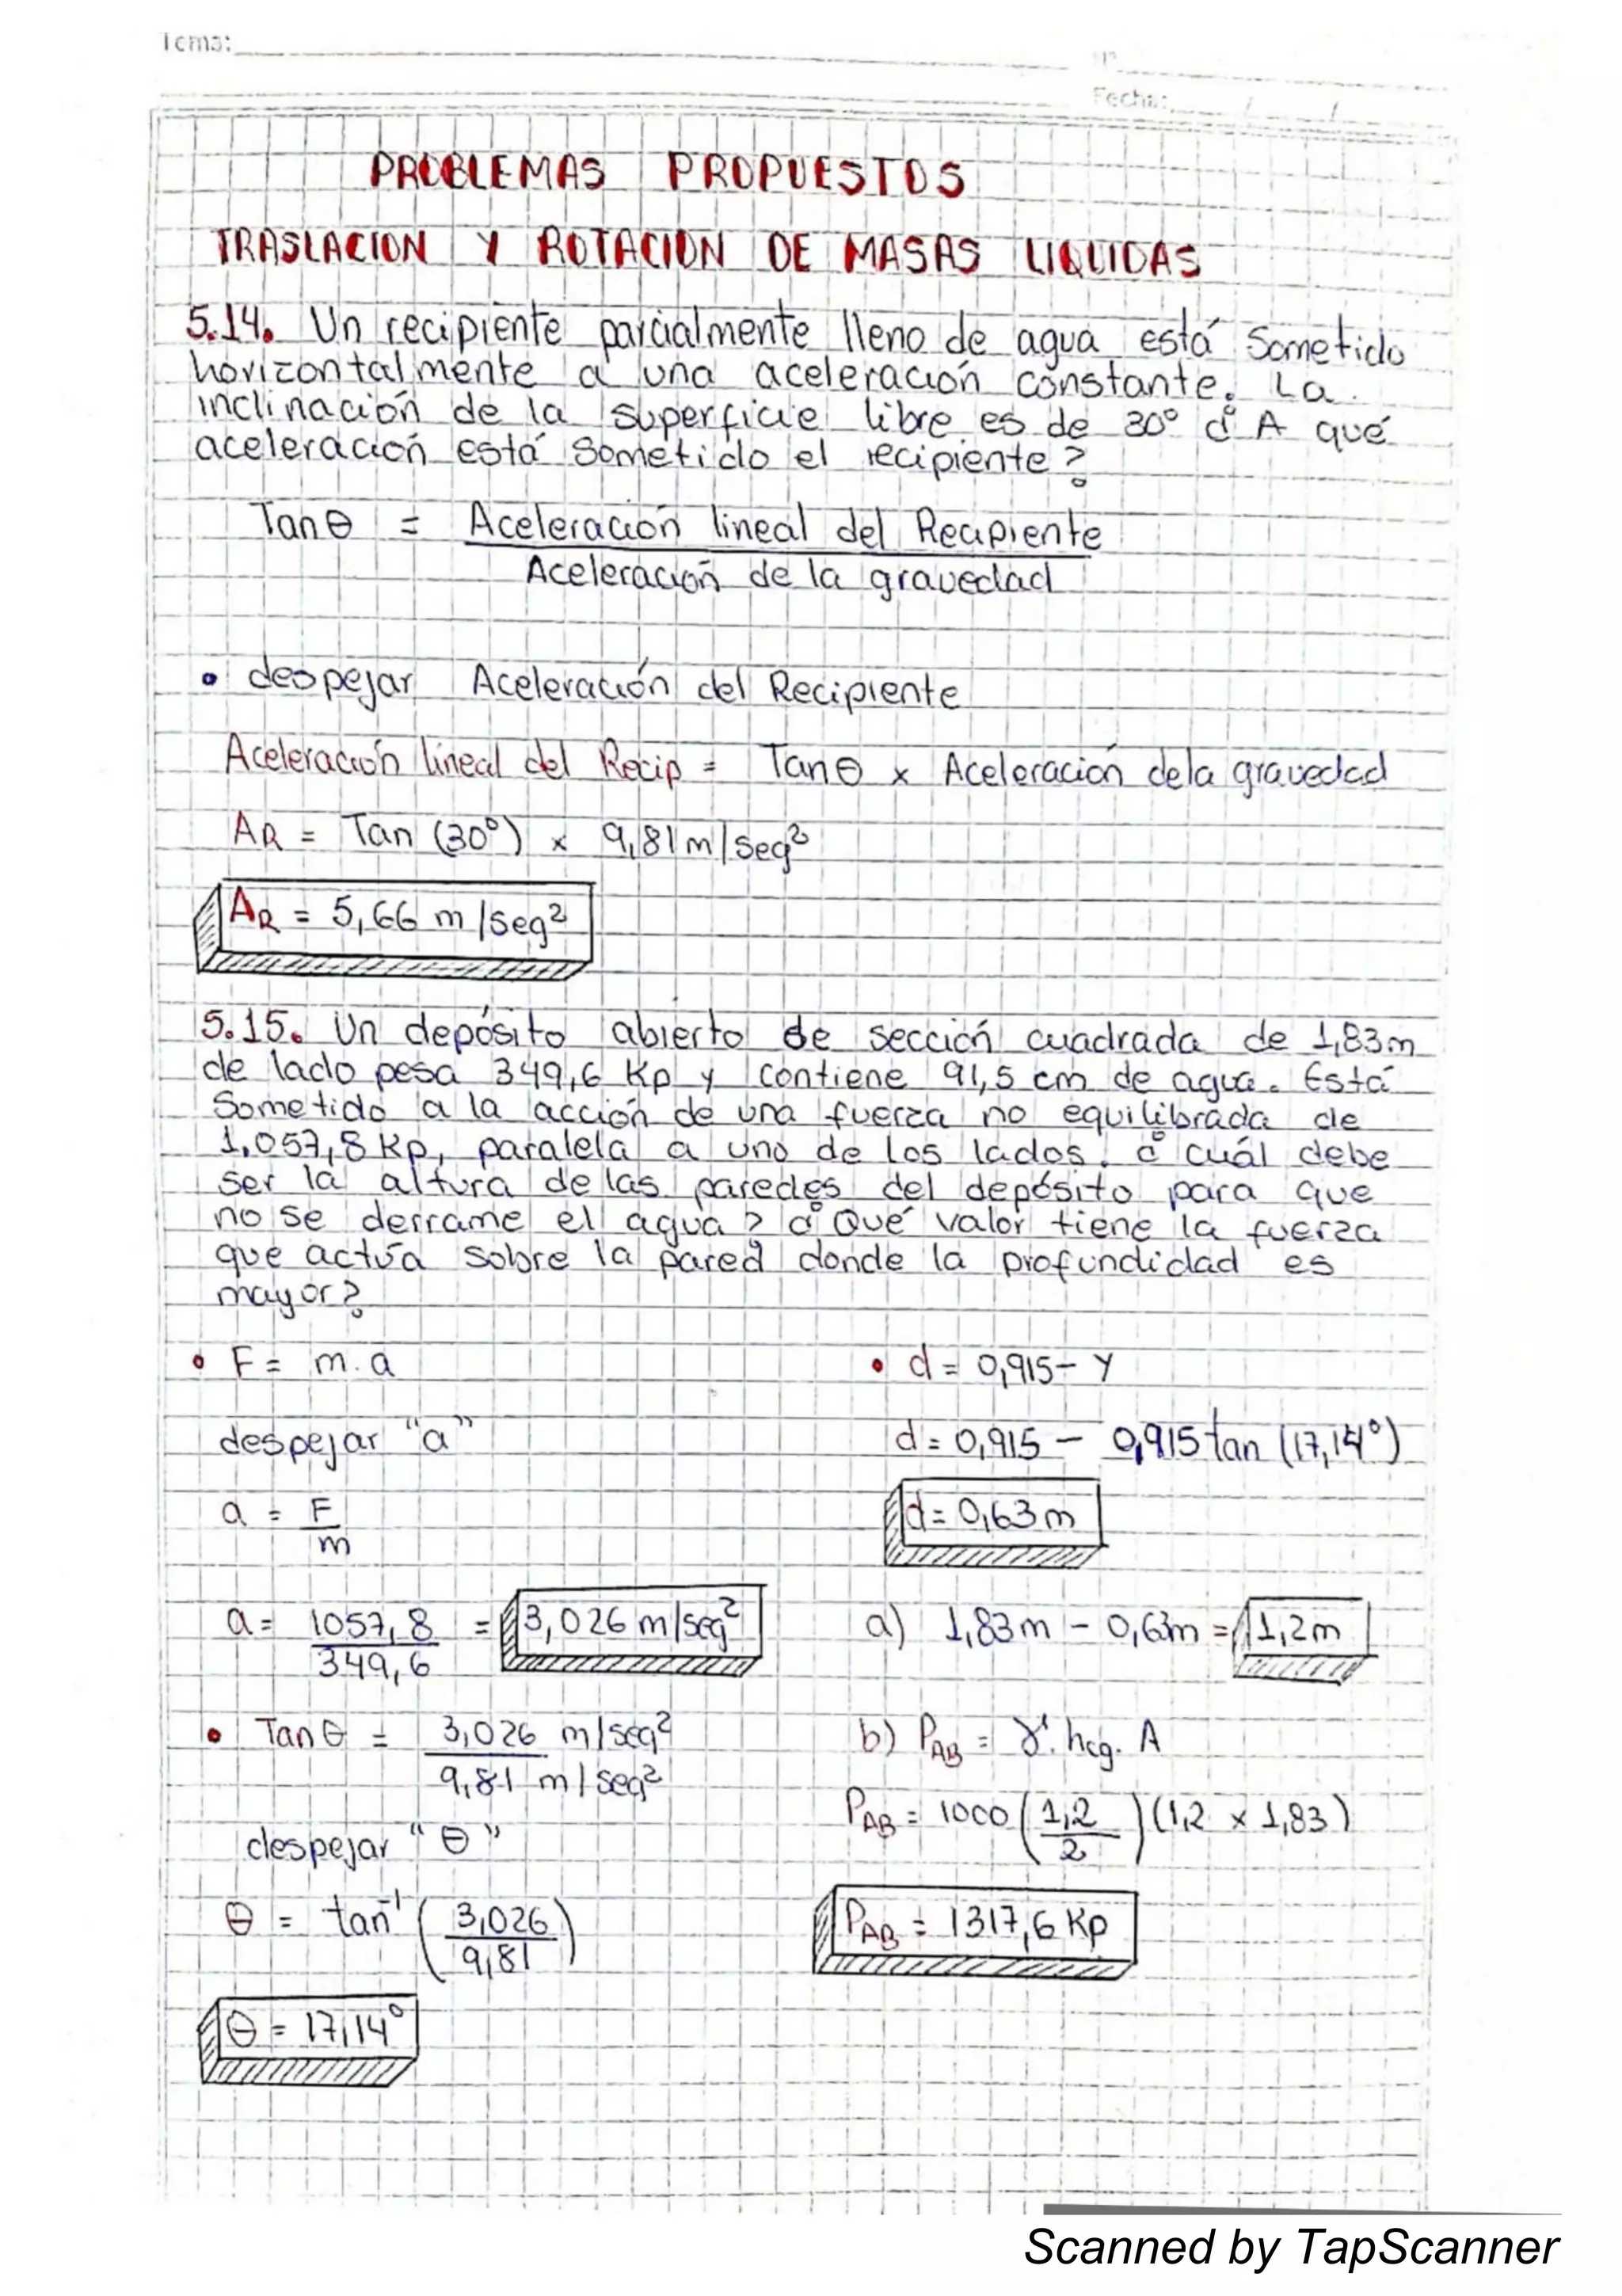 Tema:
N°
Fecha: / /
PROBLEMAS PROPUESTOS
TRASLACION Y ROTACION DE MASAS LIQUIDAS
5.14. Un recipiente parcialmente lleno de agua está sometido
horizontalmente a una aceleración constante. La
inclinación de la superficie libre es de 30° ¿ A qué
aceleración está sometido el recipiente?
Tanθ = Aceleración lineal del Recipiente
Aceleración de la gravedad
• despejar Aceleración del Recipiente
Aceleración lineal del Recip = Tanθ x Aceleración de la gravedad
AR = Tan (30°) x 9,81 m/seg²
AR = 5,66 m/seg²
5.15. Un depósito abierto de sección cuadrada de 1,83m
de lado pesa 349,6 Kp y contiene 91,5 cm de agua. Está
sometido a la acción de una fuerza no equilibrada de
1.057,8 Kp, paralela a uno de los lados. ¿ cuál debe
ser la altura de las paredes del depósito para que
no se derrame el agua? ¿ Qué valor tiene la fuerza
que actúa sobre la pared donde la profundidad es
mayor?
• F = m.a
despejar "a"
a = F
m
a = 1057,8 = 3,026 m/seg²
349,6
• Tanθ = 3,026 m/seg²
9,81 m/seg²
despejar "θ"
θ = tan⁻¹ (3,026
9,81)
θ = 17,14°
• d = 0,915 - Y
d = 0,915 - 0,915 tan (17,14°)
d = 0,63 m
a) 1,83m - 0,63m = 1,2m
b) PAB = γ. hcg. A
PAB = 1000 (1,2
2) (1,2 x 1,83)
PAB = 1317,6 Kp
Scanned by TapScanner